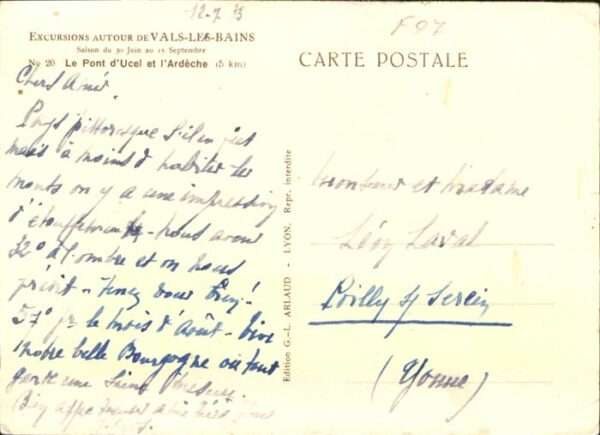 12-7
F07
EXCURSIONS AUTOUR DE VALS-LES-BAINS
Saison du 30 Juin au 15 Septembre
No 20 Le Pont d'Ucel et l'Ardèche (5 km)
CARTE POSTALE
Chers Amis
Pays pittoresque s'il en est
mais à moins d'habiter les
monts on y a une impression
d'étouffement - nous avons
32° à l'ombre et on nous
prédit - tenez vous bien!
57° pr le mois d'Août - Vive
notre belle Bourgogne où tout
garde une
Edition G.-L. ARLAUD - LYON. Repr. interdite
Monsieur et Madame
Léon Laval
Poilly s/ Serein
(Yonne)